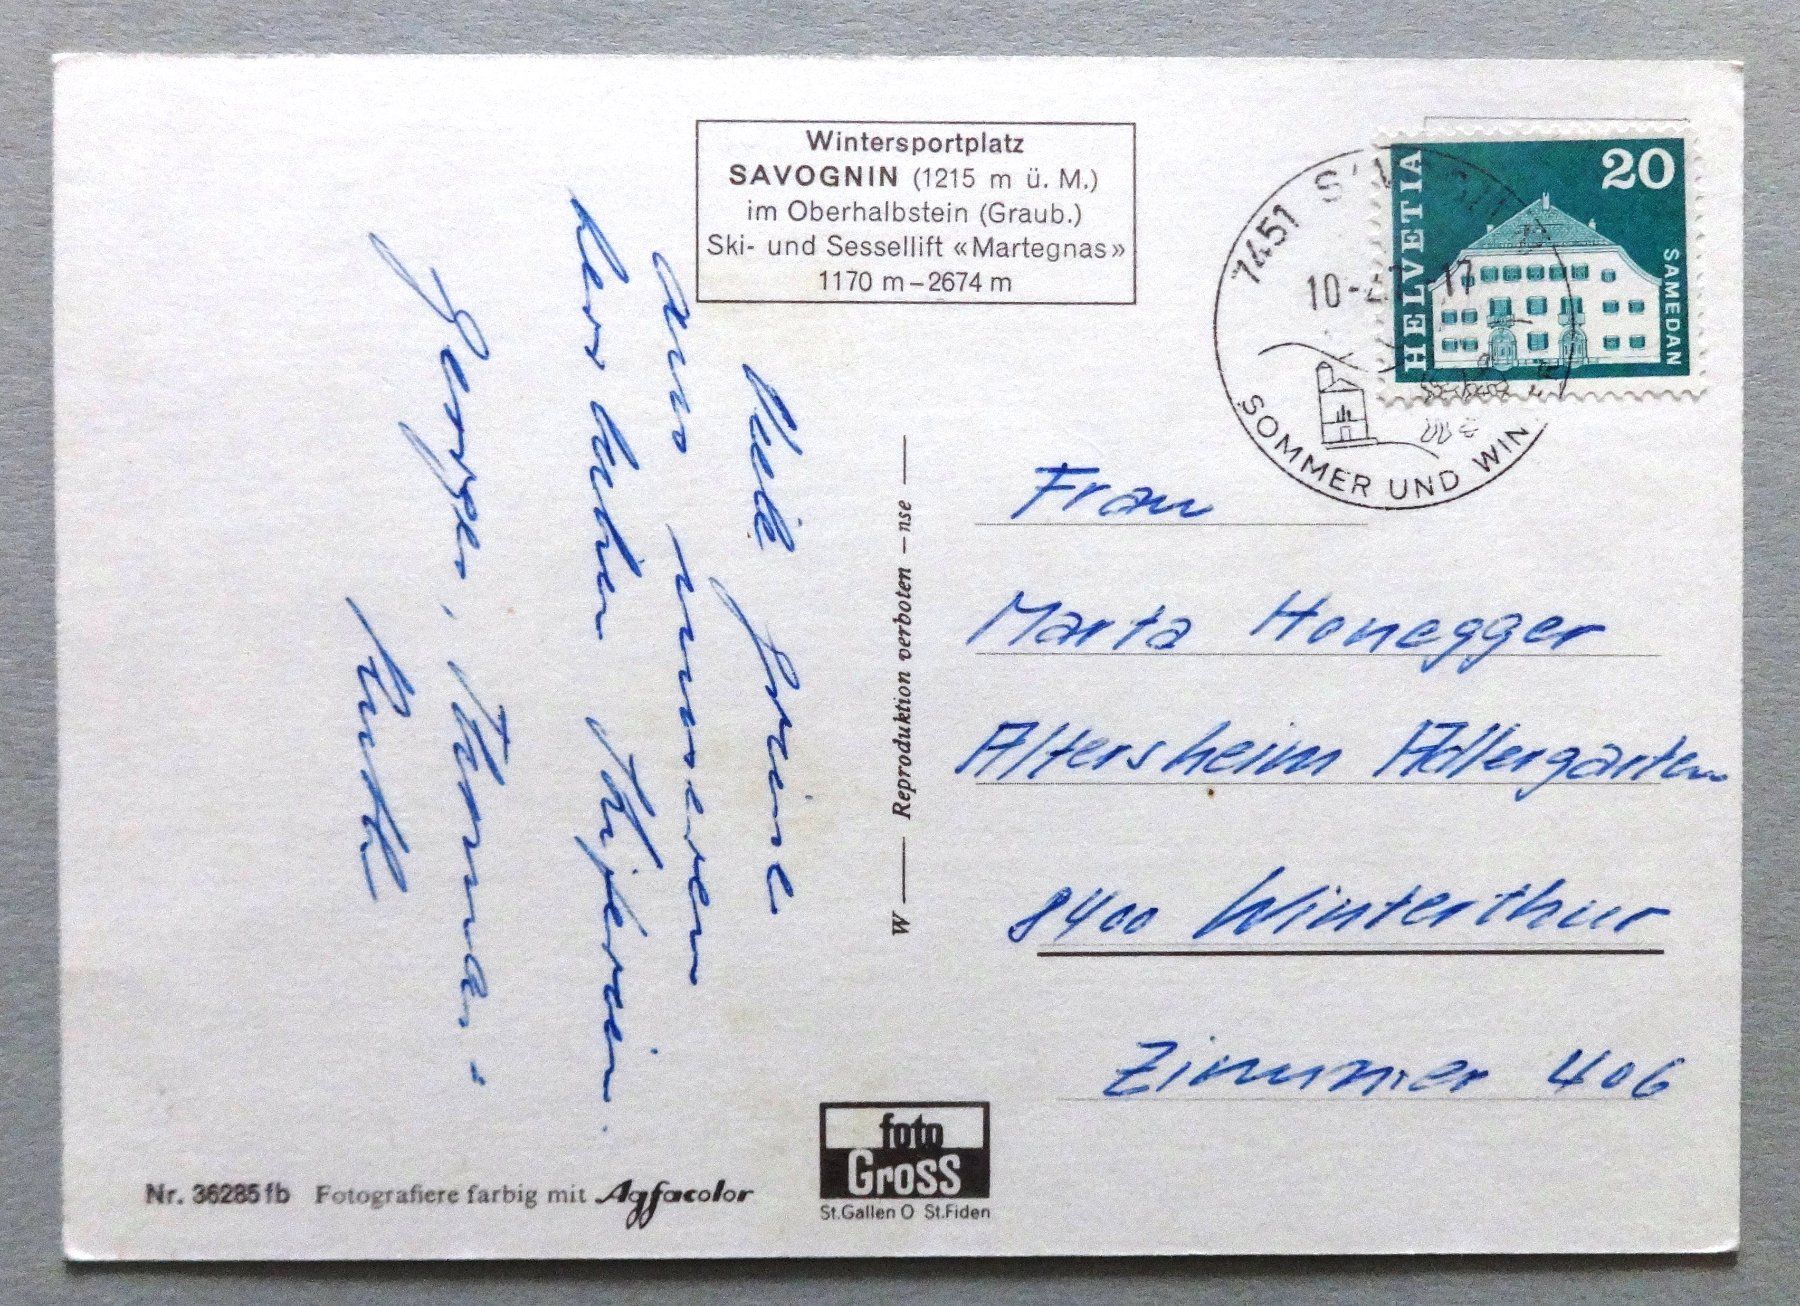 Wintersportplatz
SAVOGNIN (1215 m ü. M.)
im Oberhalbstein (Graub.)
Ski- und Sessellift «Martegnas»
1170 m – 2674 m
HELVETIA
20
SAMEDAN
7451
10-2.7 17
SOMMER UND WIN
Viele Grüsse
aus unseren
herrlichen Skiferien
Thomas
Ruth
W — Reproduktion verboten – nse —
Frau
Marta Honegger
Altersheim Adlergarten
8400 Winterthur
Zimmer 406
Nr. 36285 fb Fotografiere farbig mit Agfacolor
foto
Gross
St.Gallen O St.Fiden